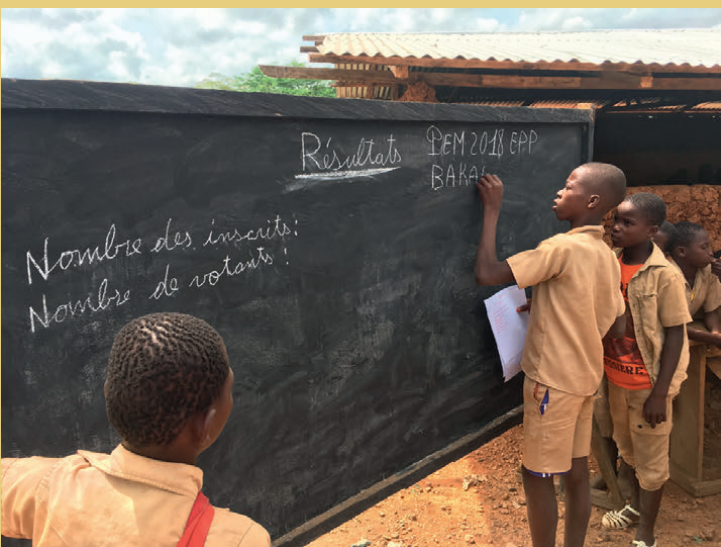 Résultats
DEM 2018 EPP
BAKA
Nombre des inscrits:
Nombre de votants: